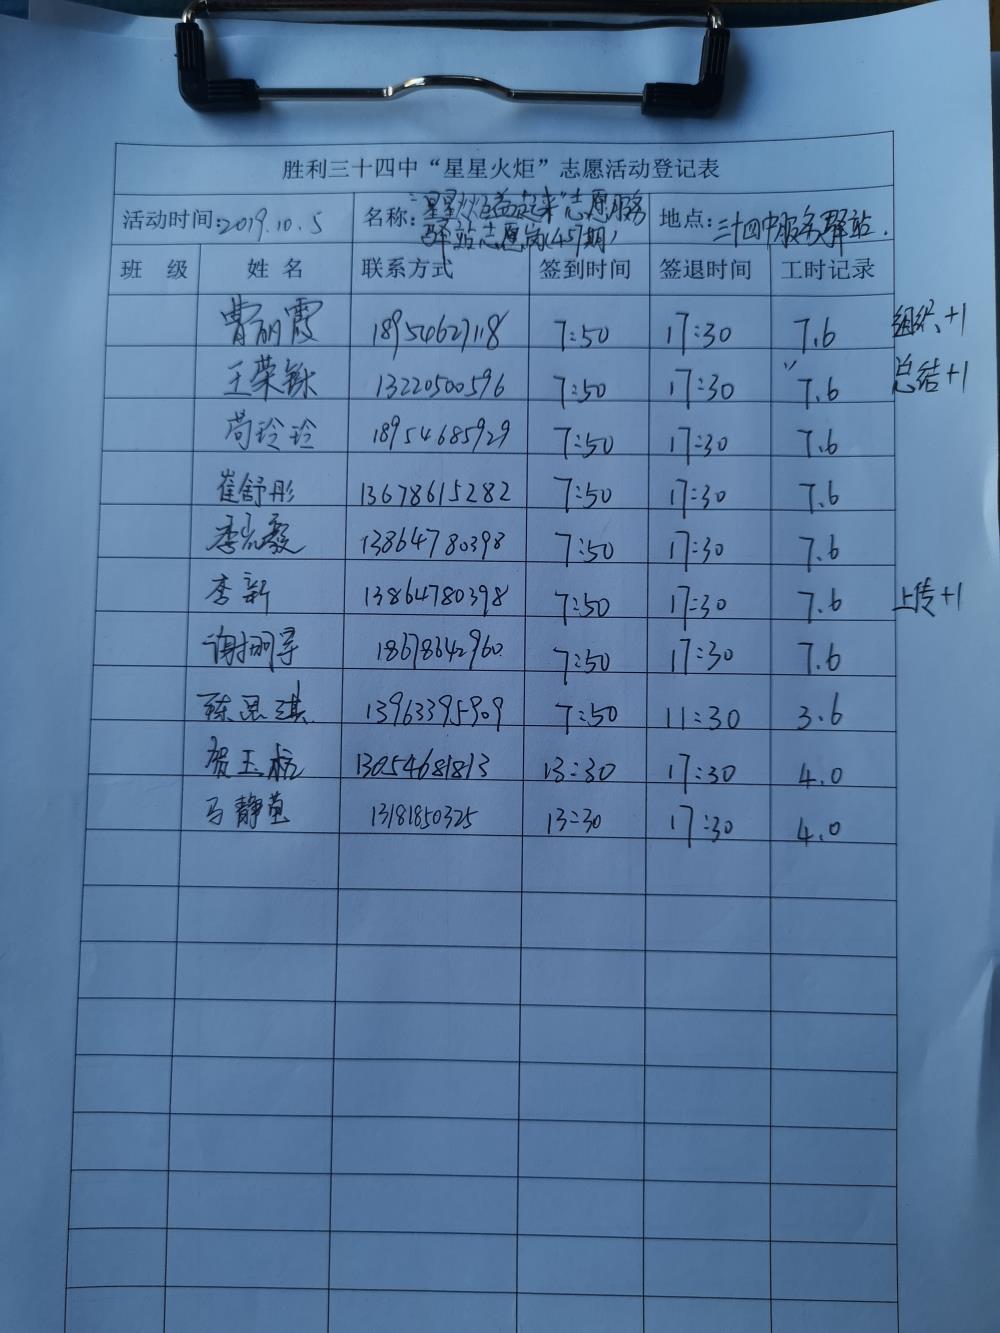 胜利三十四中“星星火炬”志愿活动登记表
活动时间:2019.10.5 名称:“星星火炬益起来”志愿服务 地点:三十四中服务驿站.
驿站志愿岗(457期)
班 级 姓 名 联系方式 签到时间 签退时间 工时记录
曹丽霞 18954627118 7:50 17:30 7.6 组织+1
王荣 13220500596 7:50 17:30 7.6 总结+1
尚玲玲 18954685929 7:50 17:30 7.6
崔舒彤 13678615282 7:50 17:30 7.6
李 13864780398 7:50 17:30 7.6
李新 13864780398 7:50 17:30 7.6 上传+1
谢 18678642960 7:50 17:30 7.6
陈思琪 13963395909 7:50 11:30 3.6
贺玉 13054681813 13:30 17:30 4.0
马静 13181850325 13:30 17:30 4.0